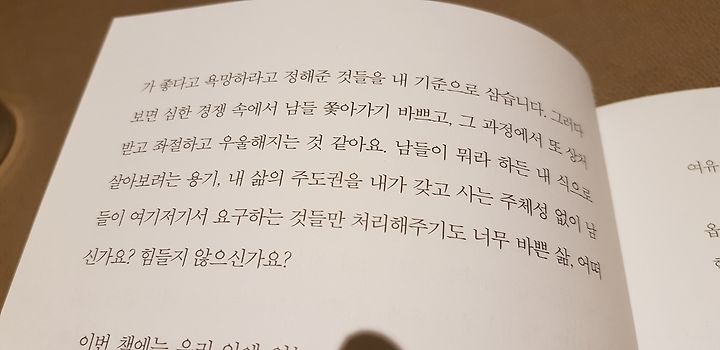 가 좋다고 욕망하라고 정해준 것들을 내 기준으로 삼습니다. 그러다
보면 심한 경쟁 속에서 남들 쫓아가기 바쁘고, 그 과정에서 또 상처
받고 좌절하고 우울해지는 것 같아요. 남들이 뭐라 하든 내 식으로
살아보려는 용기, 내 삶의 주도권을 내가 갖고 사는 주체성 없이 남
들이 여기저기서 요구하는 것들만 처리해주기도 너무 바쁜 삶, 어떠
신가요? 힘들지 않으신가요?
이번 책에는 우리
여유